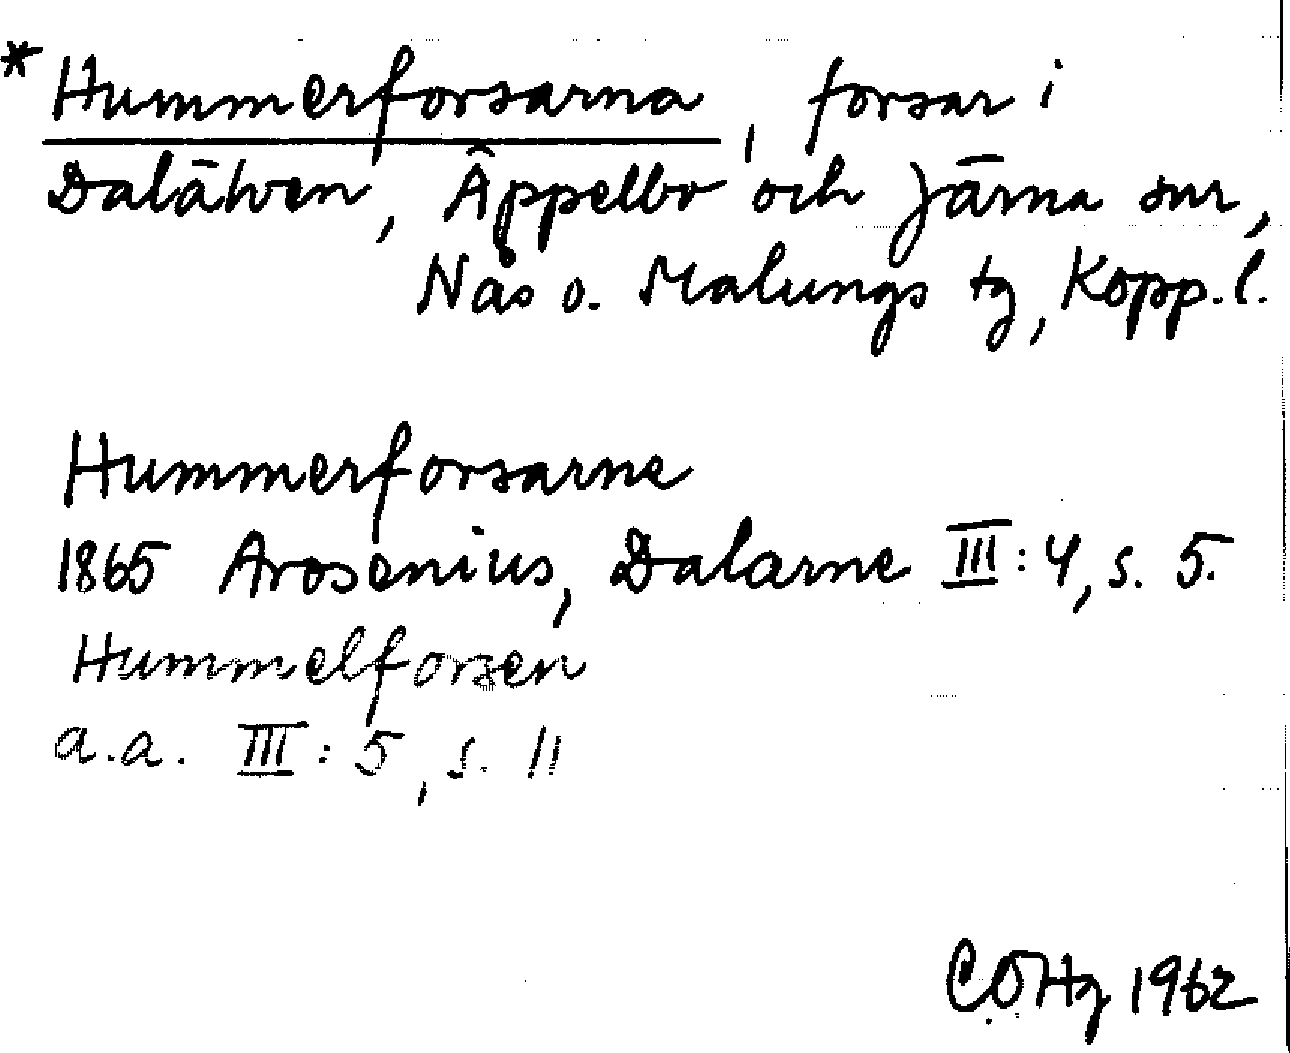 * Hummerforsarna, forsar i
Dalälven, Äppelbo och Järna snr,
Nås o. Malungs tg, Kopp. l.
Hummerforsarne
1865 Arosenius, Dalarne III:4, s. 5.
Hummelforsen
a.a. III:5, s. 11
CÖHg 1962